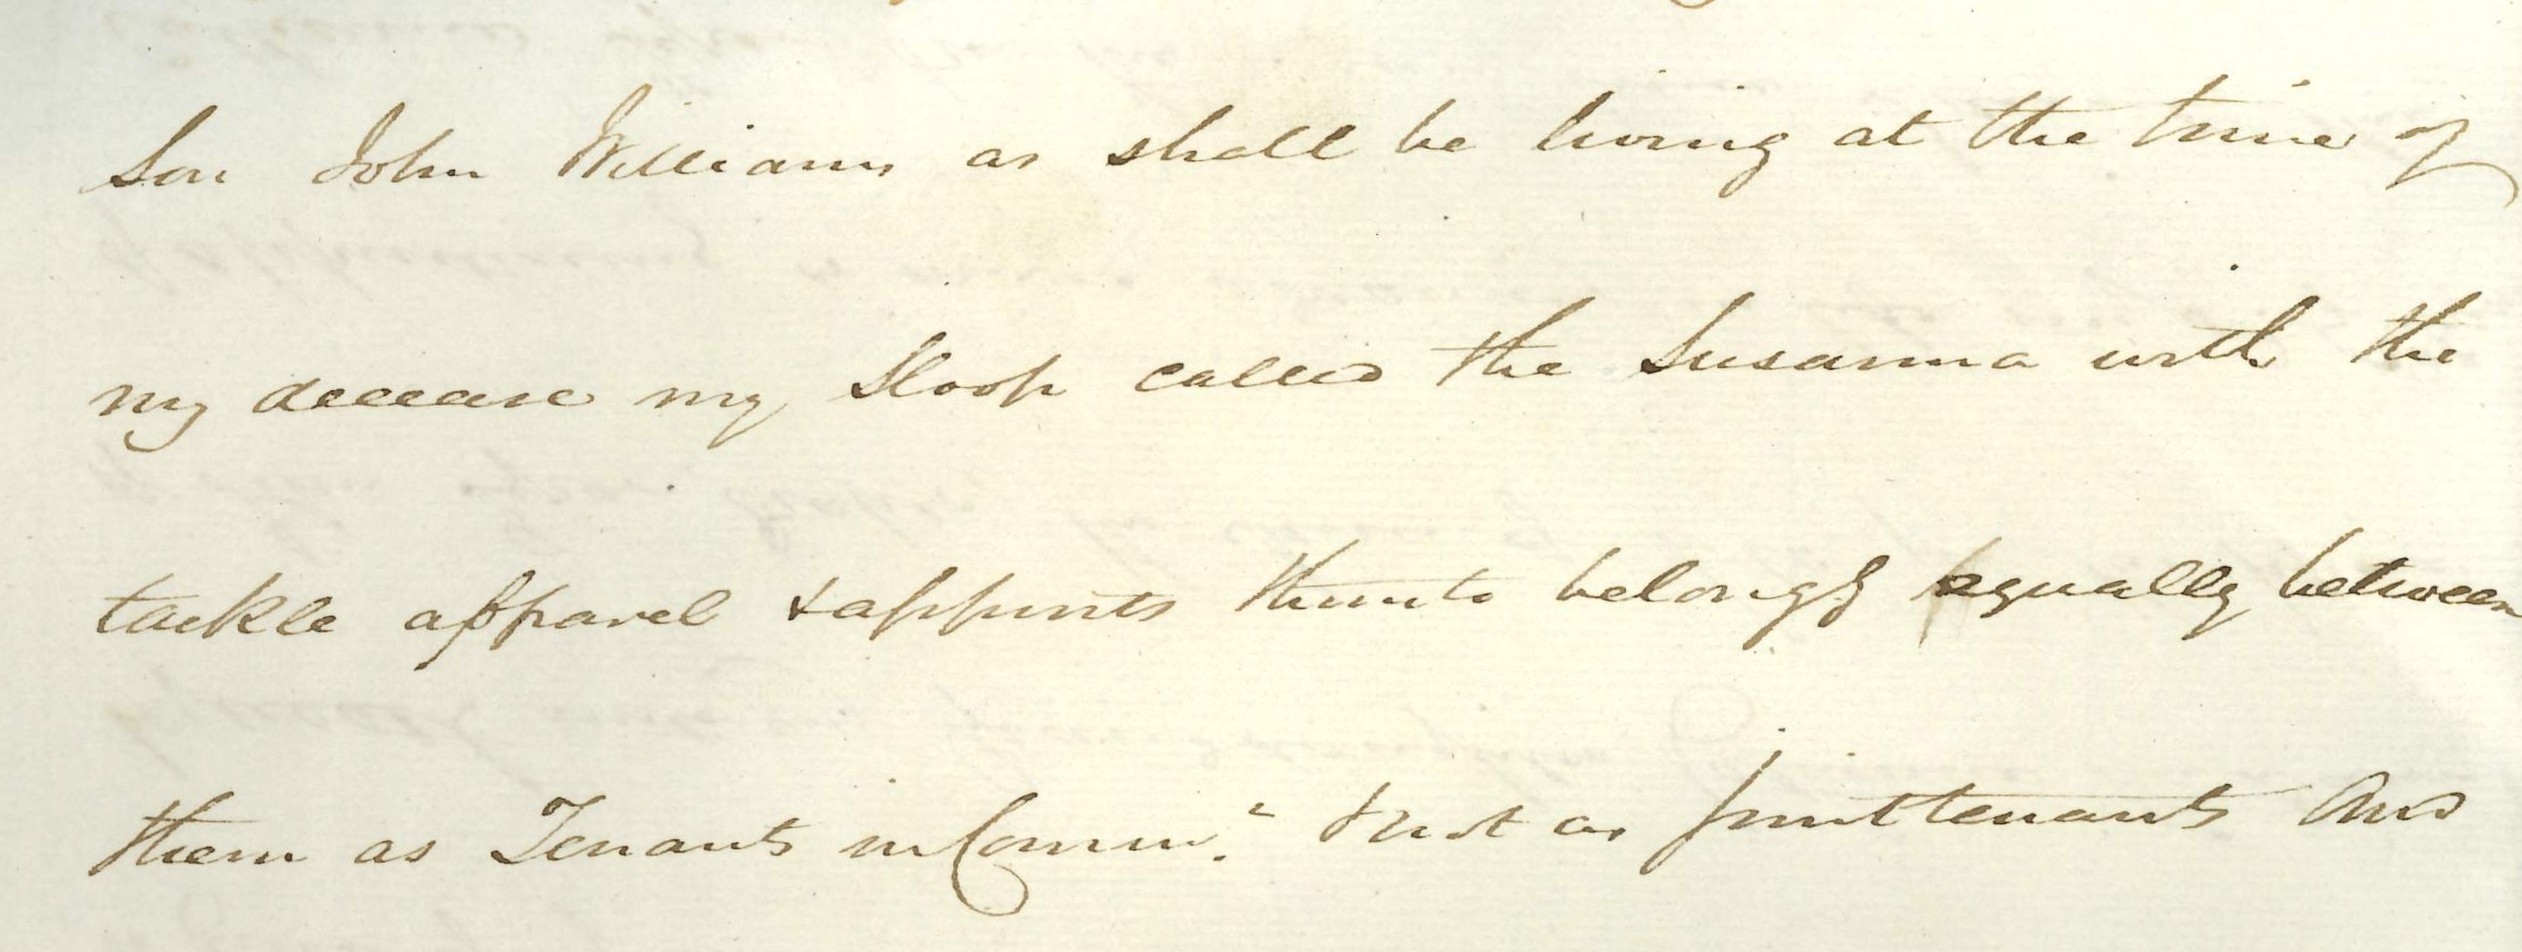 Son John Williams as shall be living at the time of
my decease my Sloop called the Susanna with the
tackle apparel & appurts thereunto belongg equally between
them as Tenants in Common & not as jointtenants And